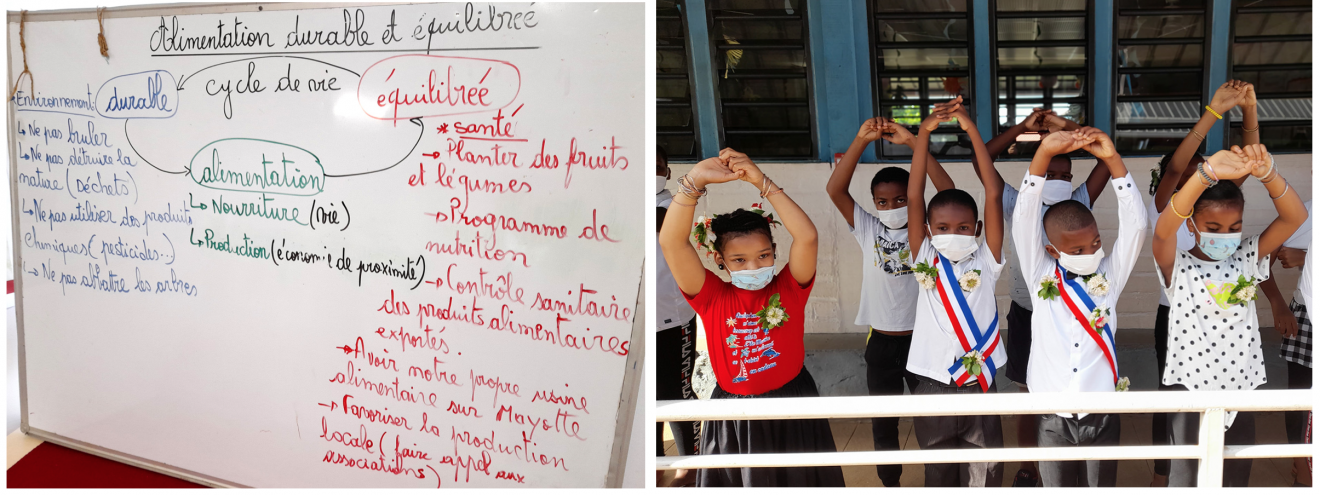 Alimentation durable et équilibreé
cycle de vie
Environnement
durable
↳ Ne pas bruler
↳ Ne pas détruire la
nature (Déchets)
↳ Ne pas utiliser des produits
chimiques (pesticides...)
↳ Ne pas abattre les arbres
alimentation
↳ Nourriture (vie)
↳ Production (économie de proximité)
équilibreé
* santé
→ Planter des fruits
et légumes
→ Programme de
nutrition
→ Contrôle sanitaire
des produits alimentaires
exportés.
→ Avoir notre propre usine
alimentaire sur Mayotte
→ Favoriser la production
locale (faire appel aux
associations)